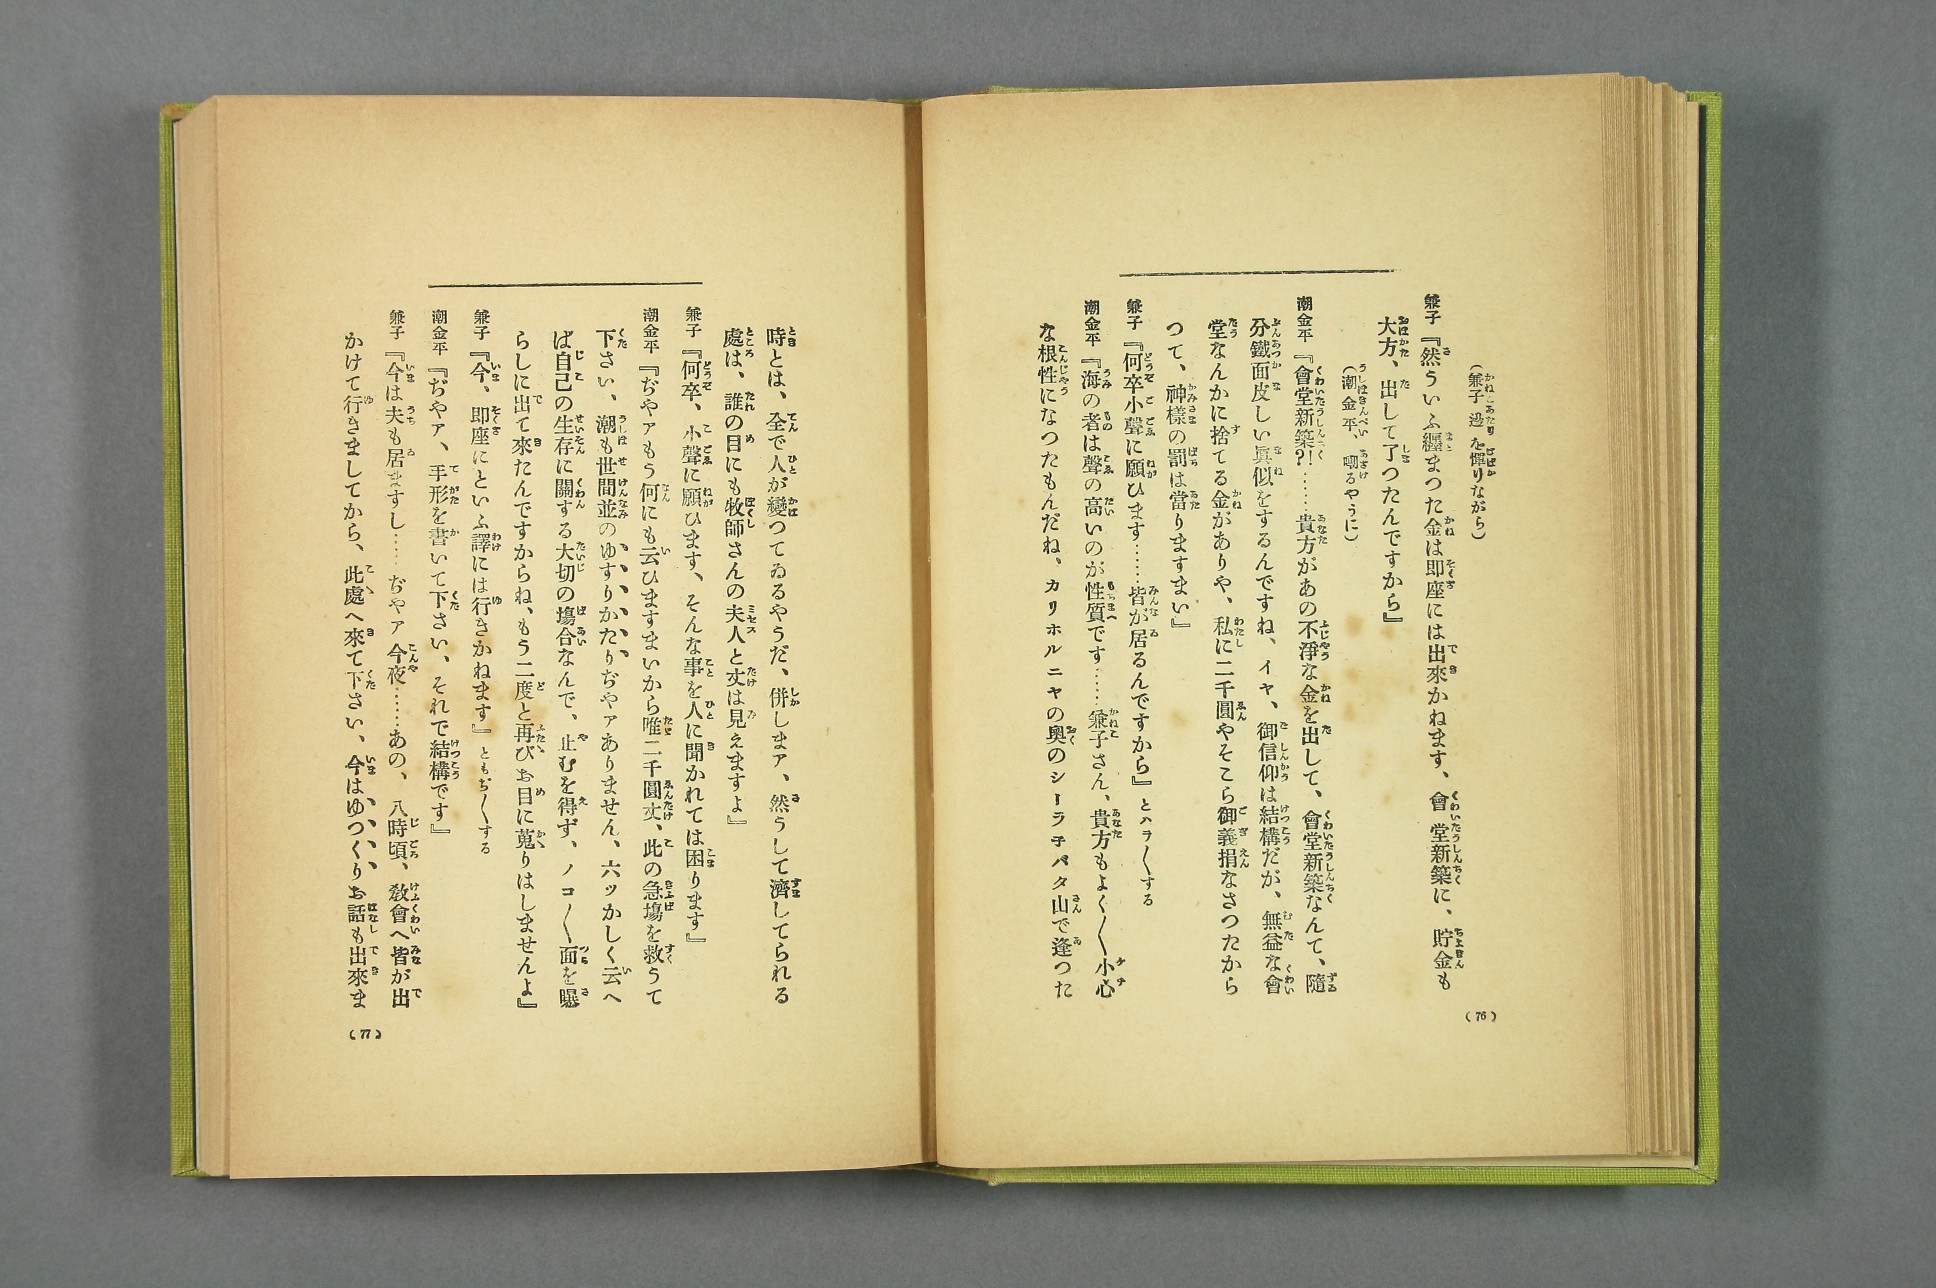 (兼子邊を憚りながら)
兼子『然ういふ纒まつた金は即座には出來かねます、會堂新築に、貯金も
大方、出して了つたんですから』
(潮金平、嘲るやうに)
潮金平『會堂新築?!……貴方があの不淨な金を出して、會堂新築なんて、隨
分鐵面皮しい眞似をするんですね、イヤ、御信仰は結構だが、無益な會
堂なんかに捨てる金がありや、私に二千圓やそこら御義捐なさつたから
つて、神樣の罰は當りますまい』
兼子『何卒小聲に願ひます……皆が居るんですから』とハラ〳〵する
潮金平『海の者は聲の高いのが性質です……兼子さん、貴方もよく〳〵小心
な根性になつたもんだね、カリホルニヤの奧のシーラ子パタ山で逢つた
(76)
時とは、全で人が變つてゐるやうだ、併しまァ、然うして濟してられる
處は、誰の目にも牧師さんの夫人と丈は見えますよ』
兼子『何卒、小聲に願ひます、そんな事を人に聞かれては困ります』
潮金平『ぢやァもう何にも云ひますまいから唯二千圓丈、此の急塲を救うて
下さい、潮も世間並のゆすりかたりぢやァありません、六ツかしく云へ
ば自己の生存に關する大切の塲合なんで、止むを得ず、ノコ〳〵面を曝
らしに出て來たんですからね、もう二度と再びお目に蒐りはしませんよ』
兼子『今、即座にといふ譯には行きかねます』ともぢ〳〵する
潮金平『ぢやァ、手形を書いて下さい、それで結構です』
兼子『今は夫も居ますし……ぢやァ今夜……あの、八時頃、敎會へ皆が出
かけて行きましてから、此處へ來て下さい、今はゆつくりお話も出來ま
(77)